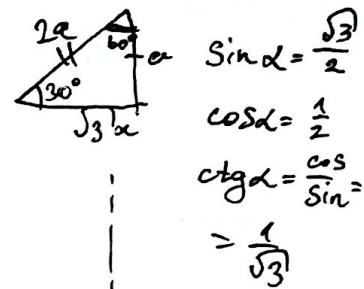 2a
60°
a
30°
√3 a
sin α = √3/2
cos α = 1/2
ctg α = cos/sin =
= 1/√3